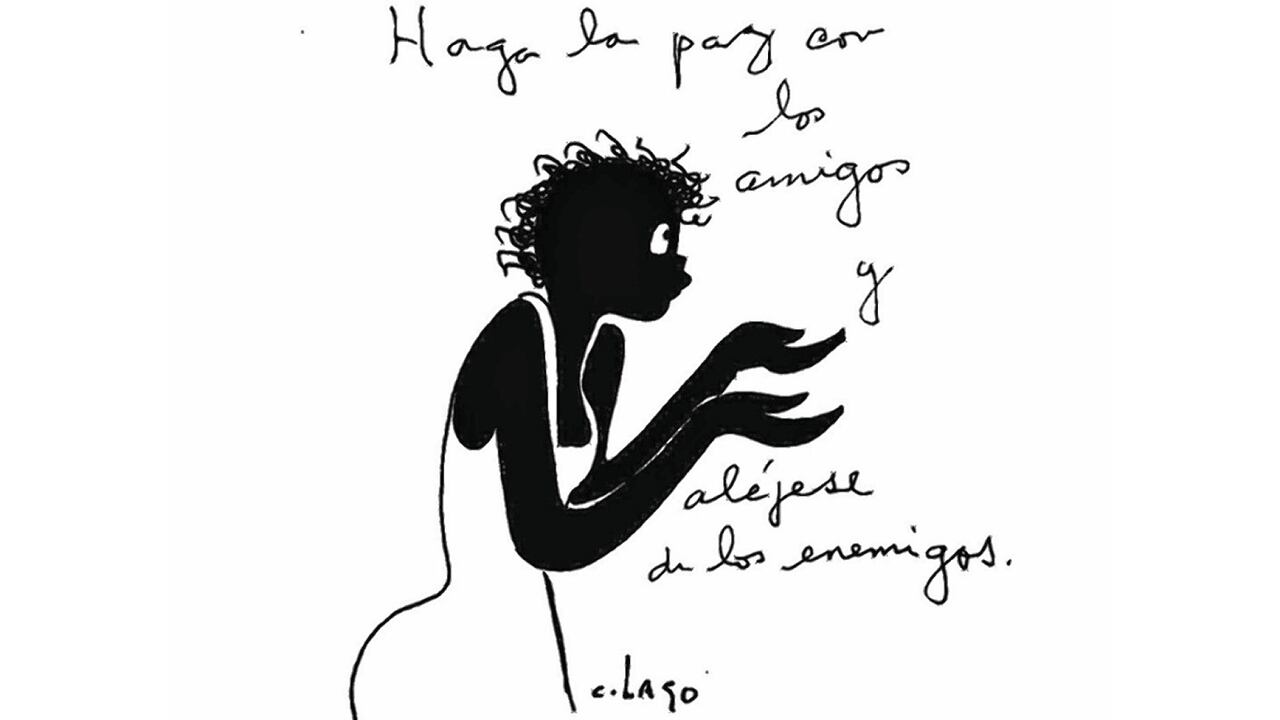 Haga la paz con
los
amigos
y
aléjese
de los enemigos.
c. LAGO